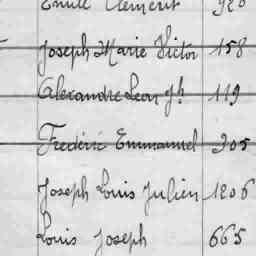 Emile Clément 920
Joseph Marie Victor 158
Alexandre Leon Jh 119
Frederic Emmanuel 305
Joseph Louis Julien 1206
Louis Joseph 665